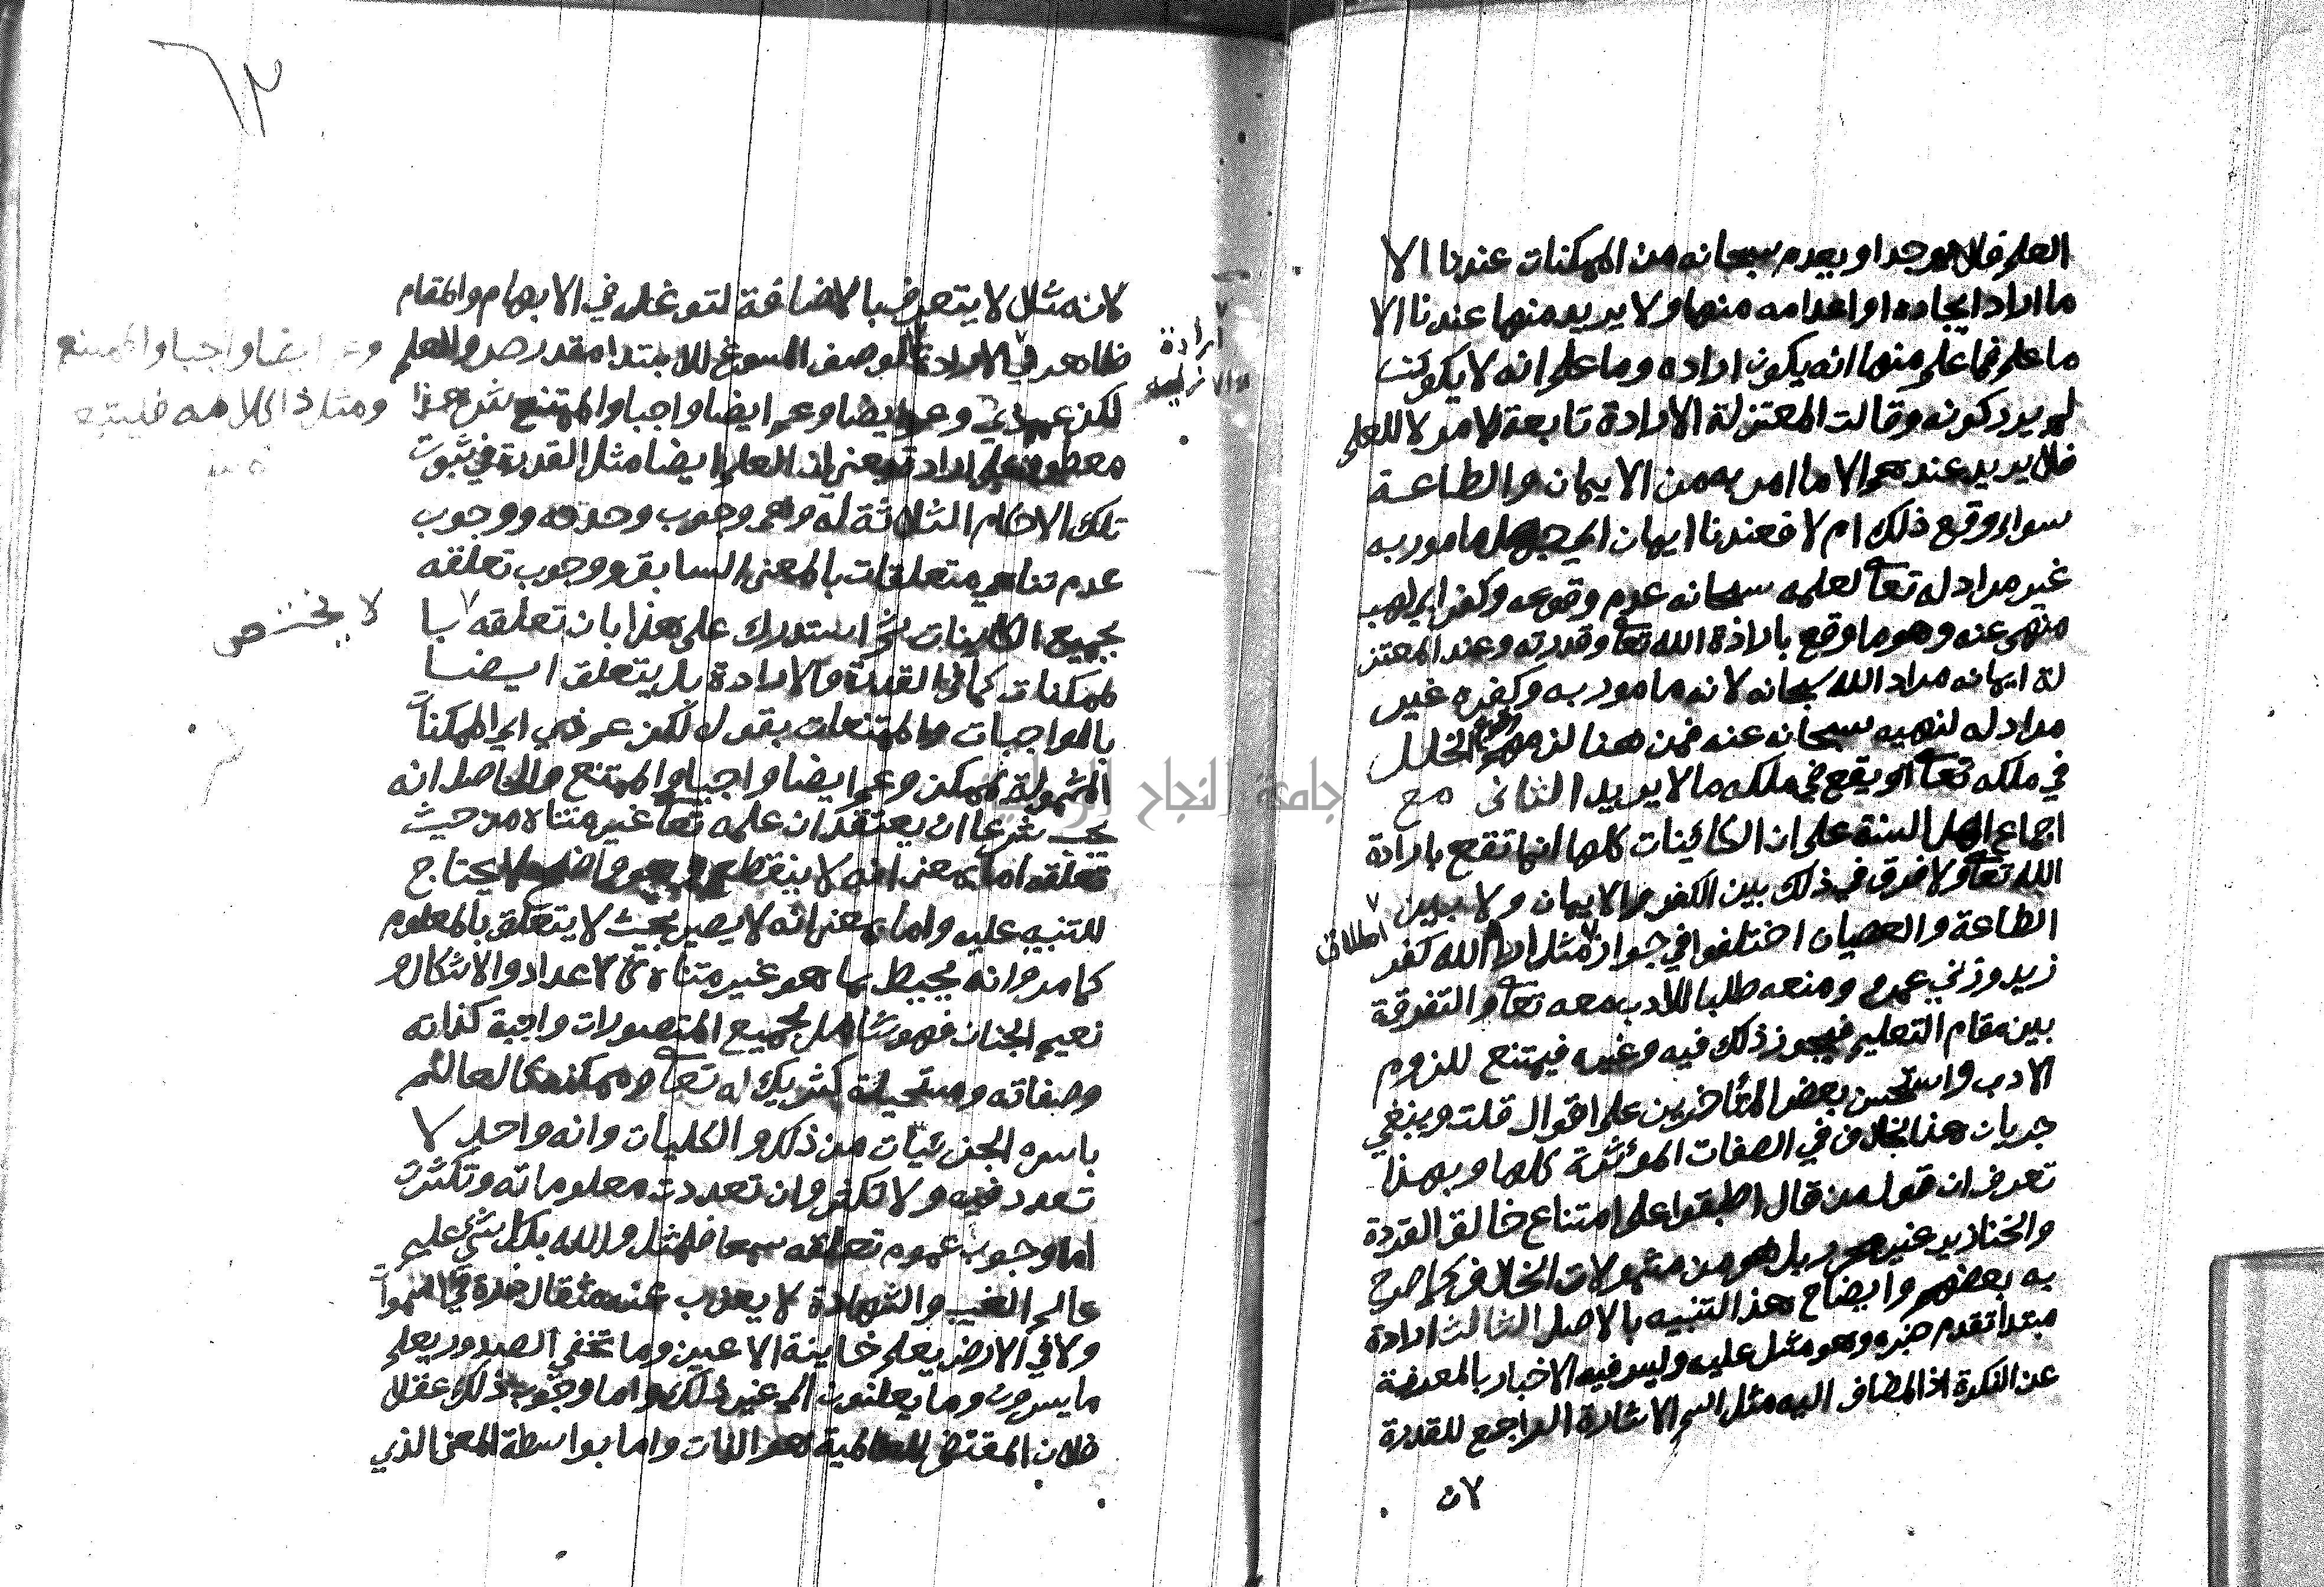 العلم فلا يوجد او يعدم سبحانه من الممكنات عندنا الا
ما اراد ايجاده او اعدامه منها ولا يريد منها عندنا الا
ما علم فما علم منها انه يكون اراده وما علم انه لا يكون
لم يرد كونه وقالت المعتزلة الارادة تابعة للامر لا للعلم
فلا يريد عندهم الا ما امر به من الايمان والطاعة
سواء وقع ذلك ام لا فعندنا ايمان ابي جهل مامور به
غير مراد له تعا لعلمه سبحانه عدم وقوعه وكفر ابي لهب
منهى عنه وهو ما وقع بارادة الله تعا وقدرته وعند المعتز
لة ايمانه مراد الله سبحانه لانه مامور به وكفره غير
مراد له لنهيه سبحانه عنه فمن هنا لزمهم وقوع الخلل
في ملكه تعا او يقع في ملكه ما لا يريد الثانى مع
اجماع اهل السنة على ان الكائينات كلها انما تقع بارادة
الله تعا ولا فرق في ذلك بين الكفر والايمان ولا بين
الطاعة والعصيان اختلفوا في جواز مثل اراد الله كفر
اطلاق
زيد وزني عمرو ومنعه طلبا للادب معه تعا والتفرقة
بين مقام التعليم فيجوز ذلك فيه وغيره فيمتنع للزوم
الادب واستحسن بعض المتأخرين على اقوال قلت وينبغي
جريان هذا الخلاف في الصفات المؤثرة كلها وبهذا
تعرف ان قول من قال اطبقوا على امتناع خالق القردة
والخنازير غير محرر بل هو من مشمولات الخلاف كما صرح
به بعضهم وايضاح هذا التنبيه بالاصل الثالث ارادة
مبتدا تقدم خبره وهو مثل عليه وليس فيه الاخبار بالمعرفة
عن النكرة اذ المضاف اليه مثل اسم الاشارة الراجع للقدرة
لان
٦٣
لانه مثل لا يتعرف بالاضافة لتوغله في الابهام والمقام
ظاهر في الارادة فالوصف المسوغ للابتدا مقدر ص والعلم
ارادة
والازلية
لكن عم ذي وعم ايضا وعم ايضا واجبا والممتنع ش هذا
وعم ايضا واجبا والممتنع
ومثل ذا كلامه فليتبع
معطوف على ارادة يعنى ان العلم ايضا مثل القدرة في ثبوت
تلك الاحكام الثلاثة له وهم وجوب وحدته ووجوب
عدم تناهي متعلقات بالمعنى السابق ووجوب تعلقه
بجميع الكاينات ثم استدرك على هذا بان تعلقه با
لا يختص
لممكنات كما في القدرة والارادة بل يتعلق ايضا
بالواجبات والممتنعات بقوله لكن عم ذي اي الممكنات
المشمولة لممكن وعم ايضا واجبا والممتنع والحاصل انه
يجب شرعا ان يعتقد ان علمه تعا غير متناه من حيث
تعلقه اما بمعنى انه لا ينقطع فهو واضح لا يحتاج
للتنبيه عليه واما بمعنى انه لا يصير بحيث لا يتعلق بالمعلوم
كما مر وانه محيط بما هو غير متناه كالاعداد والاشكال و
نعيم الجنان فهو شامل لجميع المتصورات واجبة كذاته
وصفاته ومستحيلة كشريك له تعا وممكنة كالعالم
باسره الجزئيات من ذلك والكليات وانه واحد لا
تعدد فيه ولا تكثر وان تعددت معلوماته وتكثرت
اما وجوب عموم تعلقه سمعا فلمثل والله بكل شئ عليم
عالم الغيب والشهادة لا يعزب عنه مثقال ذرة في السموات
ولا في الارض يعلم خاينة الاعين وما تخفي الصدور يعلم
ما يسرون وما يعلنون الى غير ذلك واما وجوب ذلك عقلا
فلان المقتضى للعالمية هو الذات واما بواسطة المعنى الذي
جامعة النجاح الوطنية